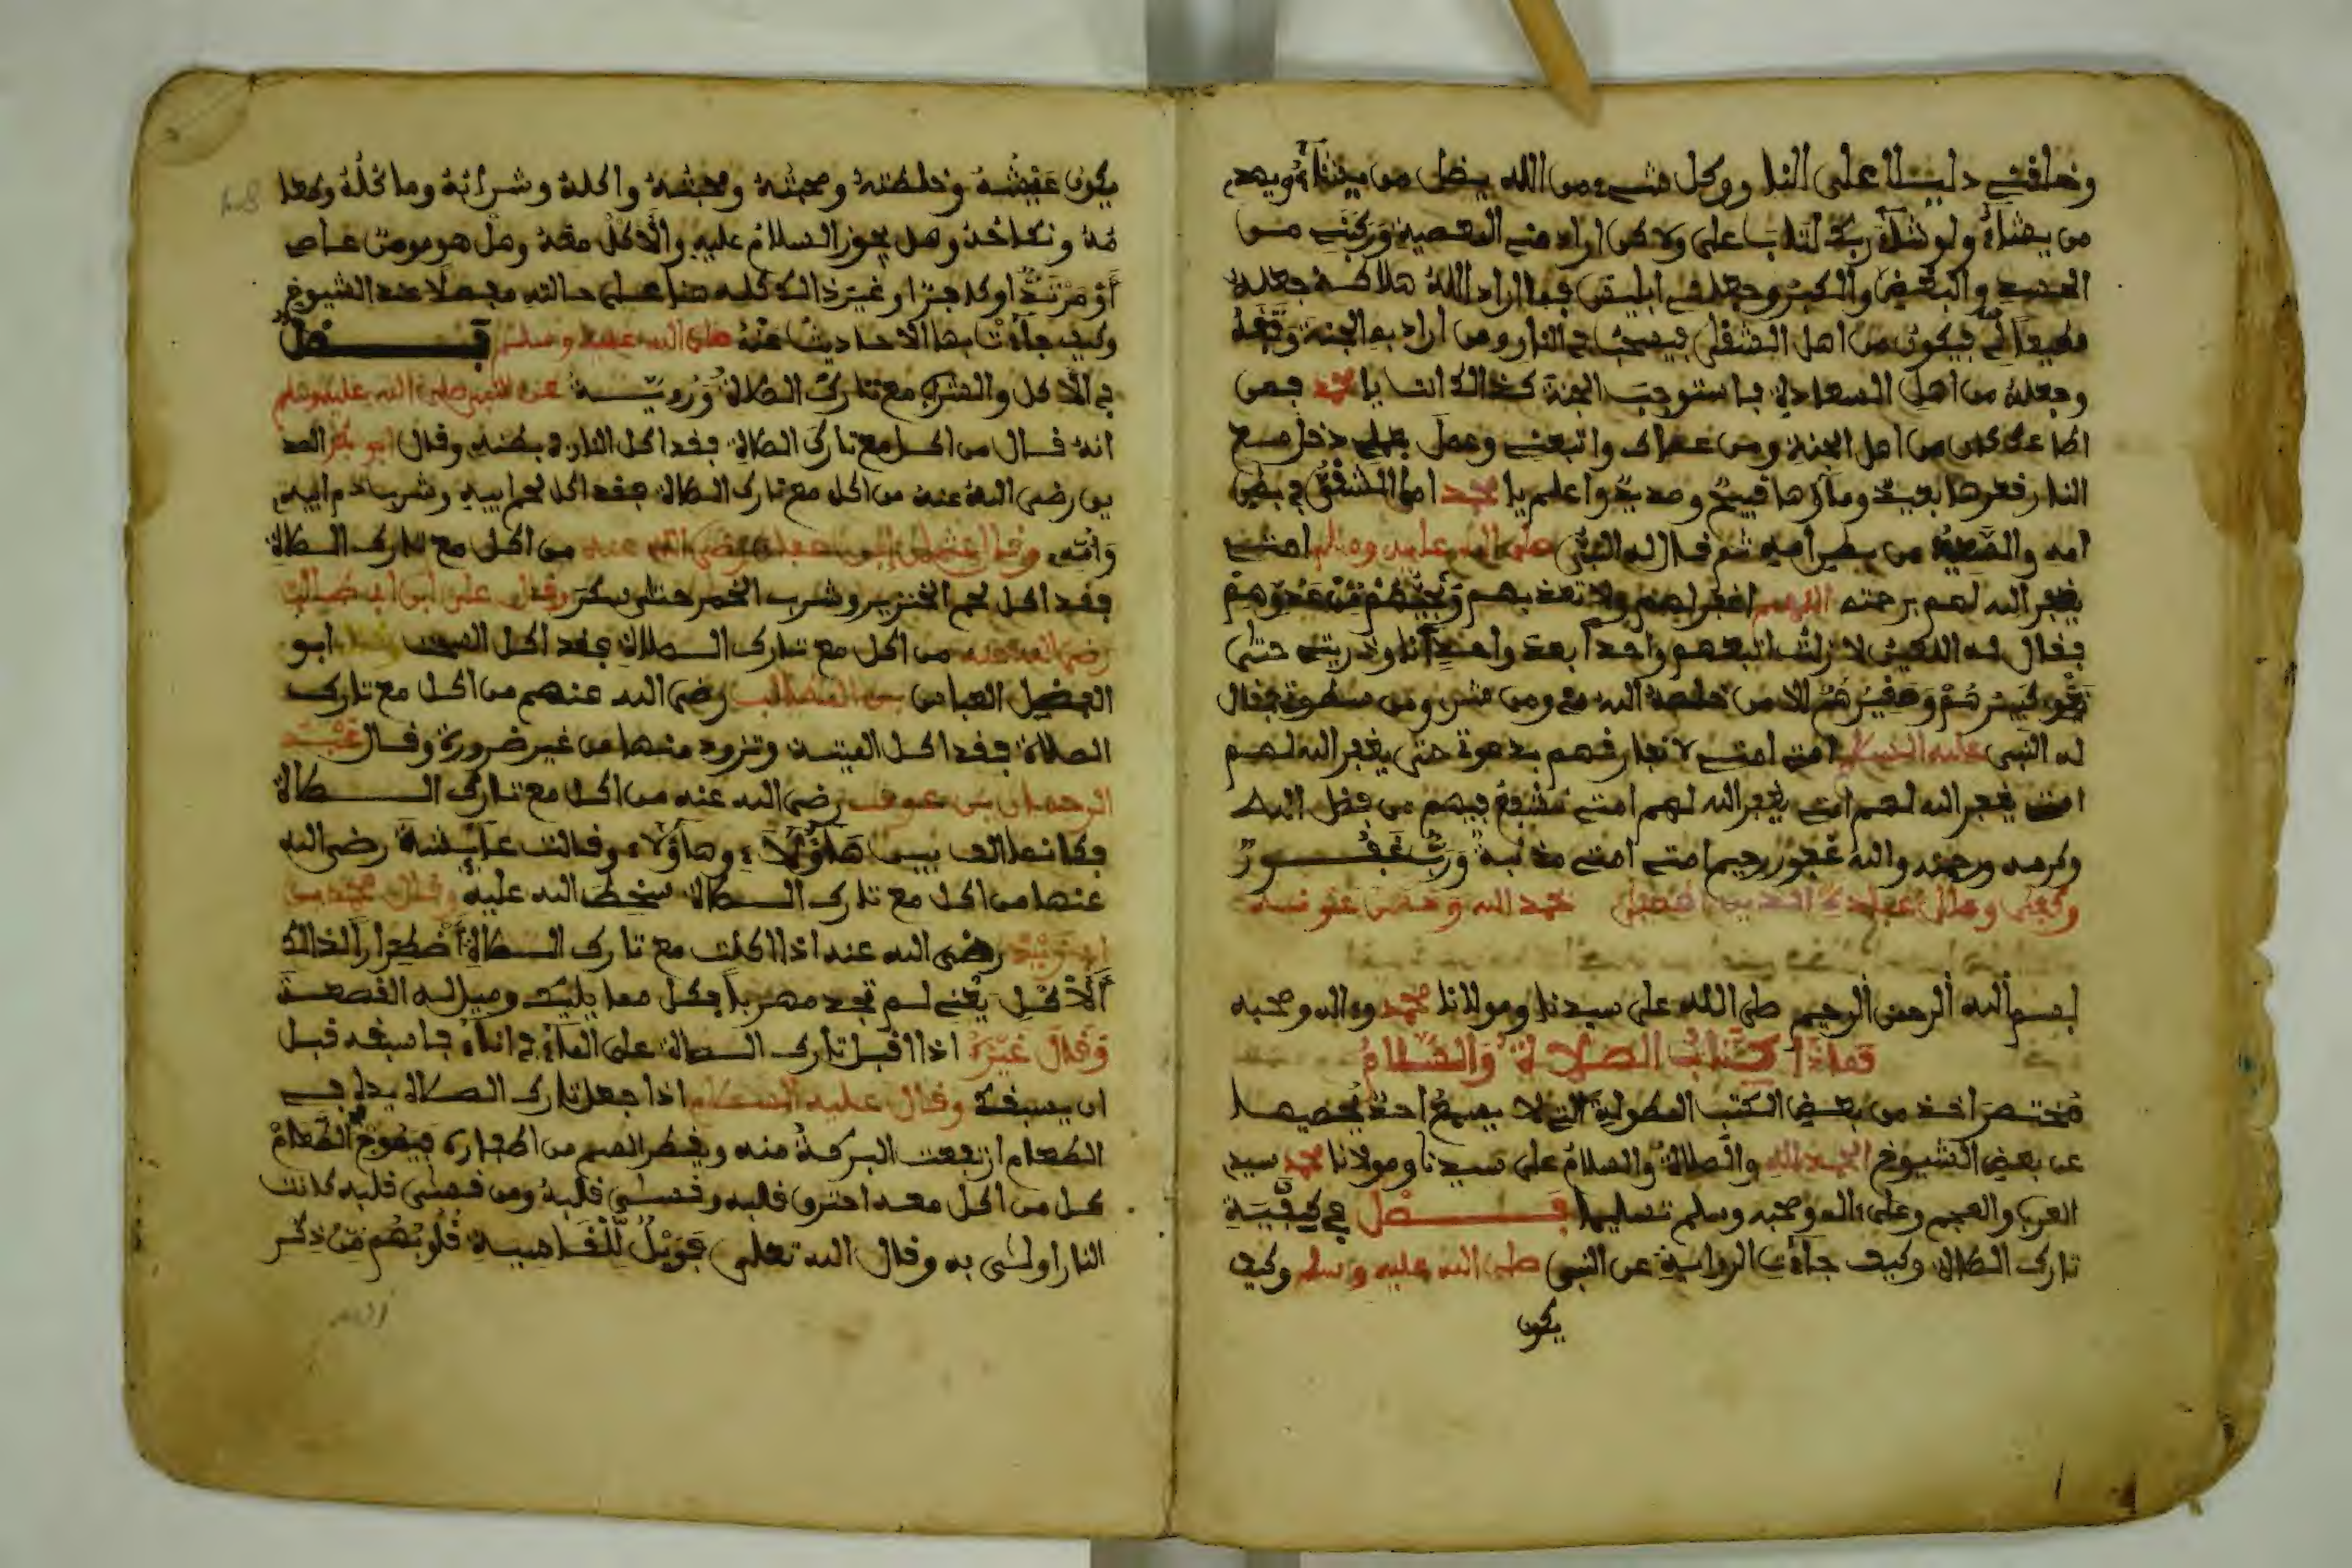 وخلقني دليلا على النار وكل شيء من الله يضل من يشاء ويهدي
من يشاء ولو شاء ربك لتاب على ولاكن اراد مني المعصية وركب من
والبغض والكبر وجعلني ابليس فما اراد الله هلاكه جعله
مطيعا لي فيكون من اهل الشقى فيصحب في النار ومن اراد به الجنة
وجعله من اهل السعادة فاستوجب الجنة كذالك انت يا محمد فمن
اطاعك كان من اهل الجنة ومن عصاك واتبعني وعمل بعملي دخل مع
النار فعرها بعيد وماؤها قيح وصديد واعلم يا محمد اما الشقي في بطن
امه والسعيد من بطن امه ثم قال له النبي صلى الله عليه وسلم امتي
يغفر الله لهم برحمته اللهم اغفر لهم ولا تعذبهم ونجيهم من عدوهم
فقال له اللعين لا زلت اتبعهم واحدا بعد واحد انا وذريتي حتى
نغوي كبيرهم وصغيرهم الا من خلصه الله مع ومن شر ومن سطوة فقال
له النبي عليه السلام امتي امتي لا نفارقهم بدعوة حتى يغفر الله لهم
امتي يغفر الله لهم امتي يغفر الله لهم امتي نشفع فيهم من فضل الله
وكرمه ورحمته والله غفور رحيم امتي امتي مذنبة ورب غفور
وكفى وسلام على عباده الذين اصطفى حمد الله وحسن عونه
بسم الله الرحمن الرحيم صلى الله على سيدنا ومولانا محمد وءاله وصحبه
هاذا كتاب الصلاة والسلام
مختصر اخذ من بعض الكتب المطولة التي لا يسع احد يحصيها
عن بعض الشيوخ الحمد لله والصلاة والسلام على سيدنا ومولانا محمد سيد
العرب والعجم وعلى ءاله وصحبه وسلم تسليما فصل في كيفية
تارك الصلاة وكيف جاءت الرواية عن النبي صلى الله عليه وسلم وكيف
يكون
يكون عيشه وخلطته ومحبته واكله وشرابه وما
ونكاحه وهل يجوز السلام عليه والاكل معه وهل هو مومن عاص
أو مرتد او كافرا وغير ذالك كله هنا على حالته مفصلا عند الشيوخ
وكيف جاءت بها الاحاديث عنه صلى الله عليه وسلم فصل
في الاكل والشرب مع تارك الصلاة وروي عن النبي صلى الله عليه وسلم
انه قال من اكل مع تارك الصلاة فقد اكل النار في بطنه وقال ابو بكر الصد
يق رضي الله عنه من اكل مع تارك الصلاة فقد اكل لحم ابيه وشرب دم ابيه
وامه وقال عثمان ابن عفان رضي الله عنه من اكل مع تارك الصلاة
فقد اكل لحم الخنزير وشرب الخمر حتى سكر وقال علي ابن ابي طالب
رضي الله عنه من اكل مع تارك الصلاة فقد اكل السحت ابو
الفضل العباس بن المطالب رضي الله عنهم من اكل مع تارك
الصلاة فقد اكل الميتة وتزود منها من غير ضرورة وقال عبد
الرحمان بن عوف رضي الله عنه من اكل مع تارك الصلاة
فكانما الف بين هاؤلاء وهاؤلاء وقالت عايشة رضي الله
عنها من اكل مع تارك الصلاة سخط الله عليه وقال محمد بن
ابي زيد رضي الله عنه اذا اكلت مع تارك الصلاة اضطرارا لذالك
الاكل يعني لم تجد مهربا فكل مما يليك وميل له القصعة
وقال غيره اذا اقبل تارك الصلاة على الماء في اناء فاسبقه قبل
ان يسبقك وقال عليه السلام اذا جعل تارك الصلاة يده في
الطعام ارتفعت البركة منه ويقطر السم من اظفاره فيقع في الطعام
كل من اكل معه احترق قلبه وقسى قلبه ومن قسى قلبه كانت
النار اولى به وقال الله تعلى فويل للقاسية قلوبهم من ذكر
الله